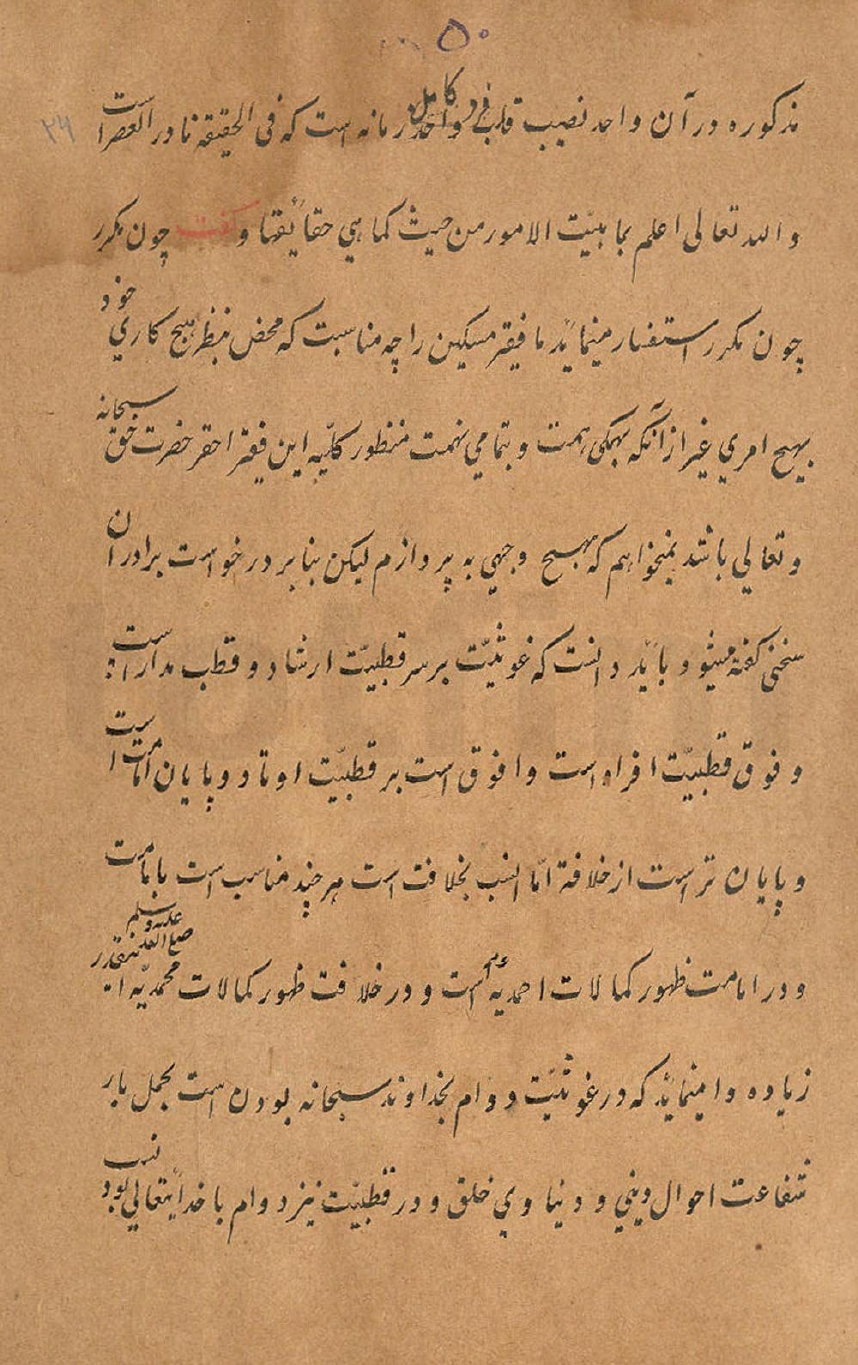 ۵۰
۲۴
مذکوره در آن واحد نصیب قلب فرد کامل و احد زمانه است که فی الحقیقه نادر العصر است
و الله تعالی اعلم بماهیّت الامور من حیث کما هی حقائقها و گفت چون مکرر
چون مکرر استفسار مینمایند ما فقیر مسکین را چه مناسبت که محض بنظر هیچ کاری خود
بهیچ امری غیر از آنکه بهمگی همت و بتمامی نهمت منظور کلیّه این فقیر احقر حضرت حق سبحانه
و تعالی باشد نمیخواهم که بهیچ وجهی به پردازم لیکن بنا بر درخواست برادران
سخنی گفته میشود باید دانست که غوثیّت بر سر قطبیّت ارشاد و قطب مدار است
و فوق قطبیّت افراد است و افوق است بر قطبیّت اوتاد و پایان امامت است
و پایان تر است از خلافة امّا انسب بخلافت است هر چند مناسب است بامامت
و در امامت ظهور کمالات احمدیه است و در خلافت ظهور کمالات محمدیّه صلی الله علیه وسلم اینقدر
زیاده وا مینماید که در غوثیّت دوام بخداوند سبحانه بودن است بحمل بار
شفاعت احوال دینی و دنیاوی خلق و در قطبیّت نیز دوام با خدایتعالی بود